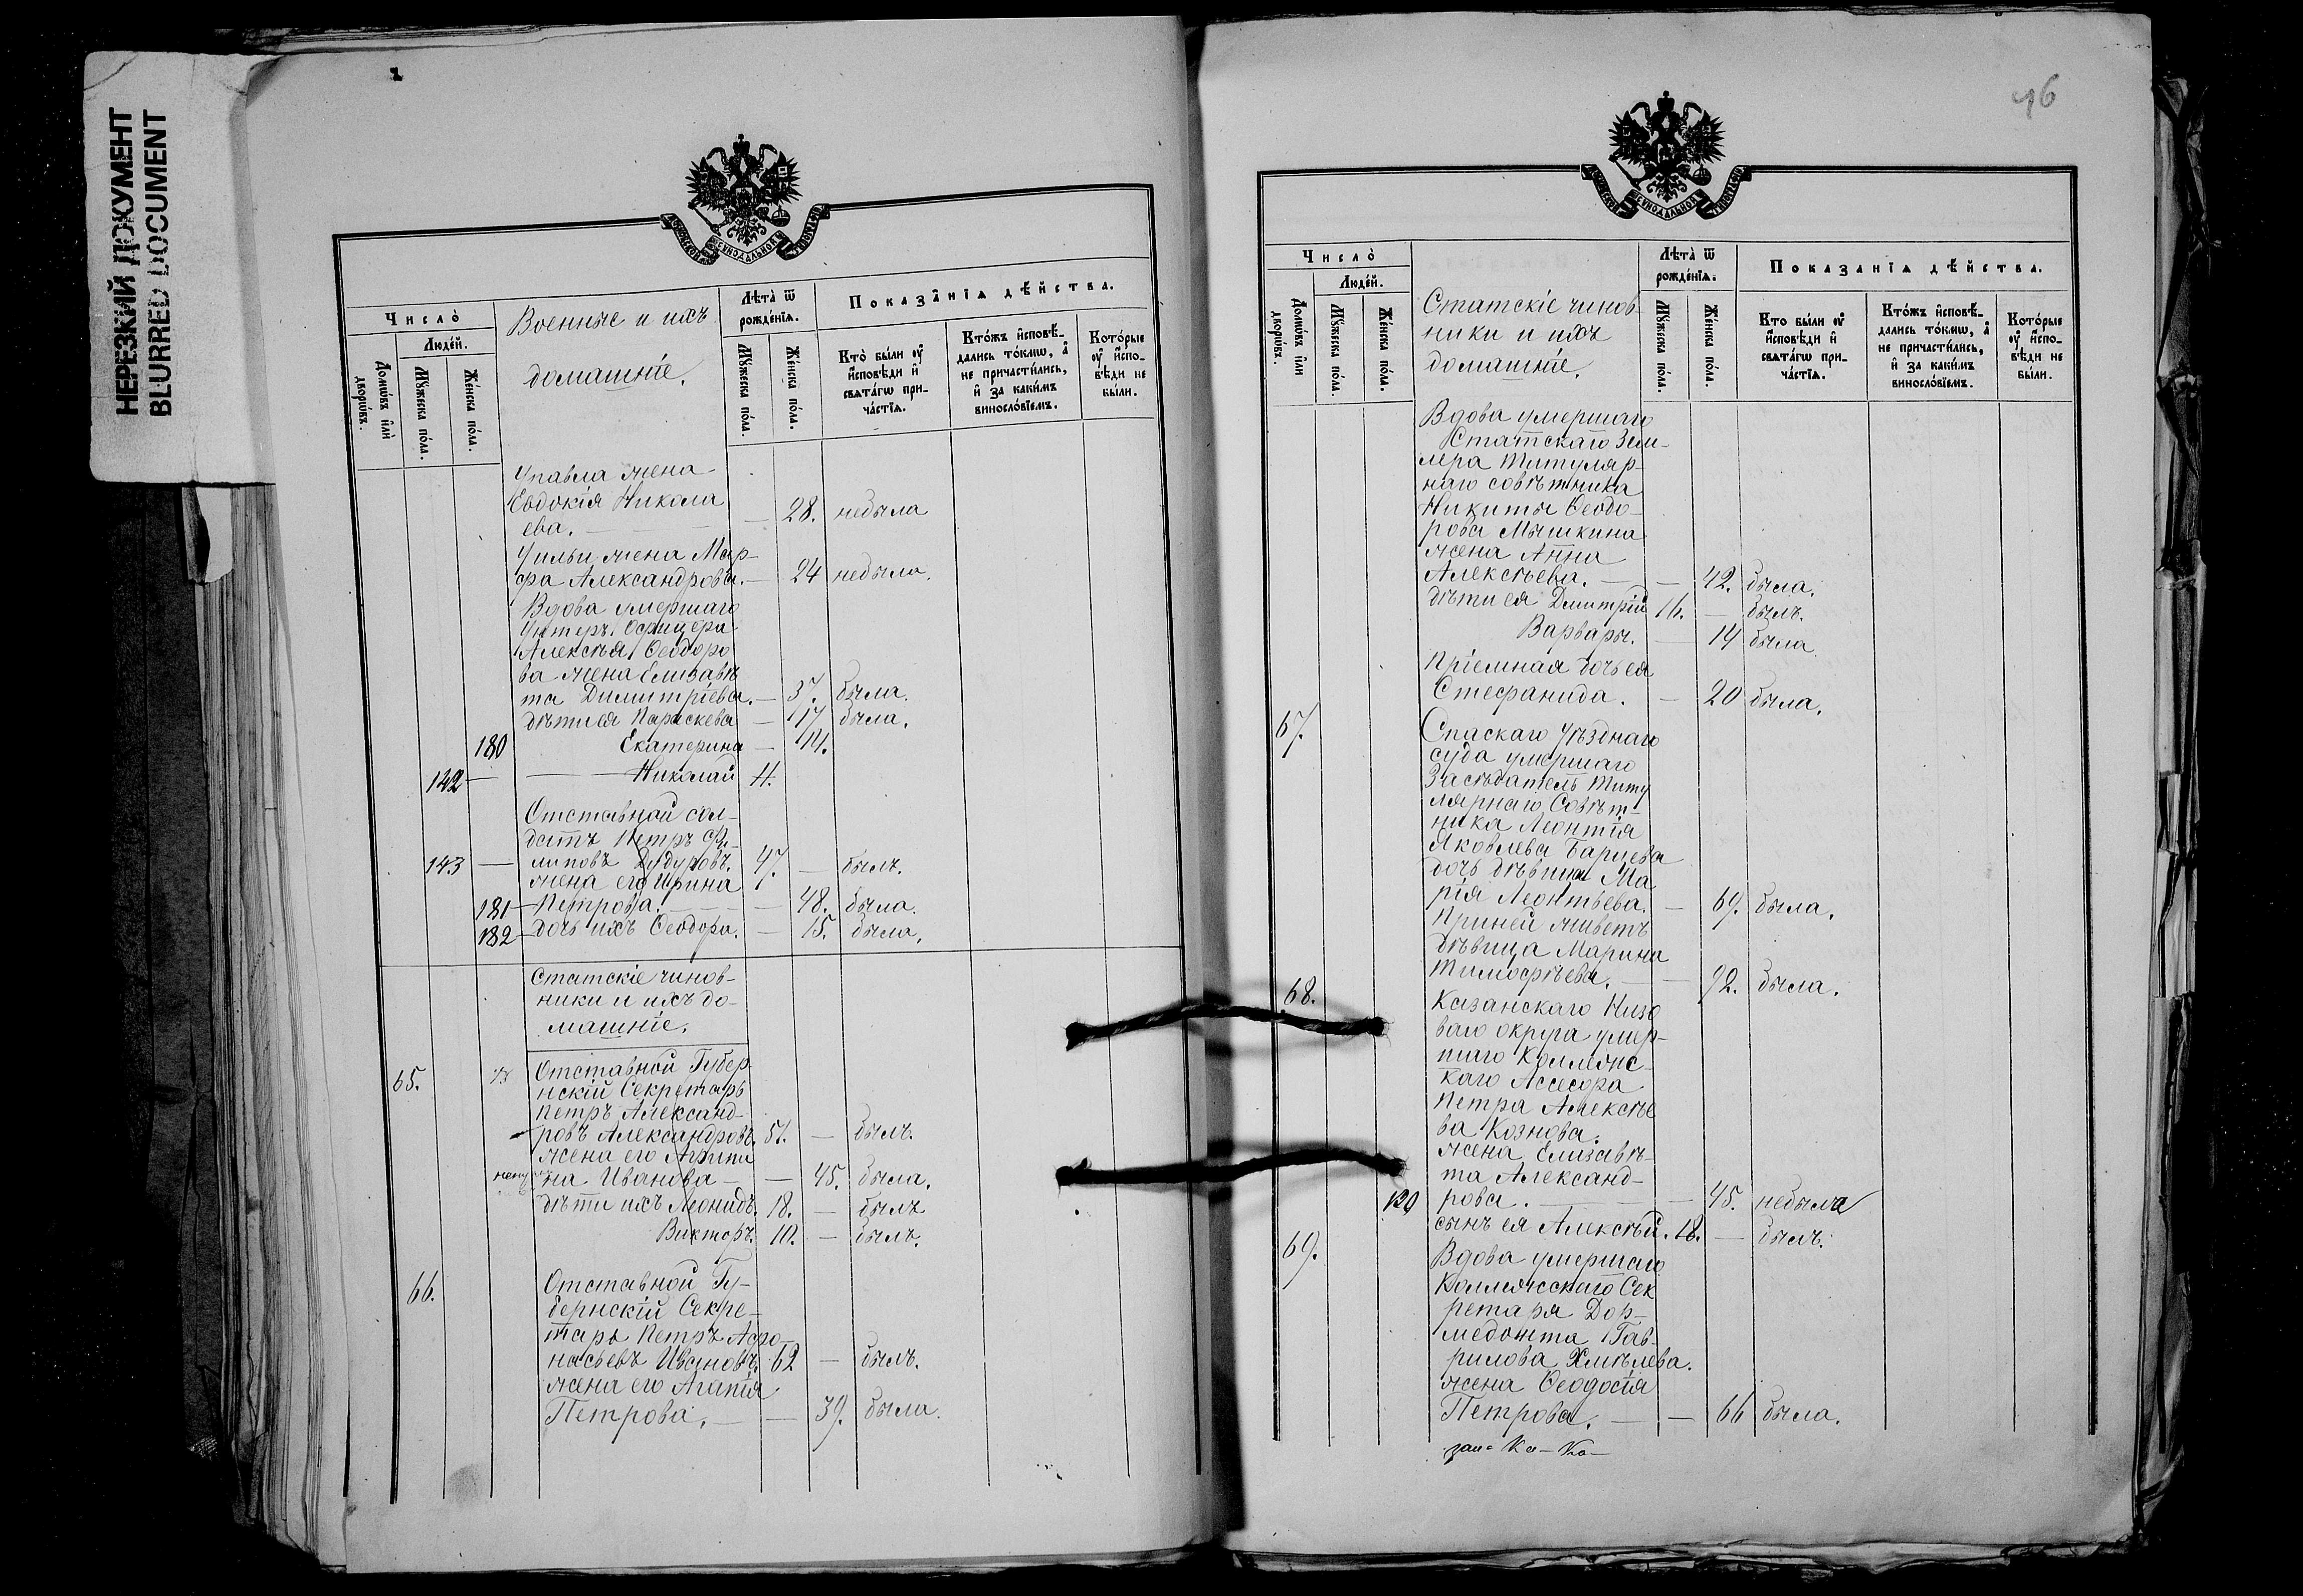 НЕРЕЗКИЙ ДОКУМЕНТ
BLURRED DOCUMENT
Число̀
Люде́й.
Домѡ́въ и҆лѝ дворѡ́въ.
Мꙋ́жеска по́ла.
Же́нска по́ла.
Военные и ихъ
домашніе.
Лѣта̀ ѿ рожде́нїѧ.
Мꙋ́жеска по́ла.
Же́нска по́ла.
Показа̑нїѧ дѣ́йства.
Кто̀ бы́ли ᲂу҆ и҆́сповѣди и҆ свѧта́гѡ при-
ча́стїѧ.
Кто́жъ и҆сповѣ́-
дались то́кмѡ, а҆
не причасти́лись,
и҆ за каки́мъ
винослові́емъ.
Кото́рые
ᲂу҆ и҆́спо-
вѣди не
бы́ли.
Упавла жена
Евдокія Никола
ева. — — 28. небыла
Уильи жена Мар-
фа Александрова. — 24 небыла.
Вдова умершаго
Унтеръ. Офицера
Алексѣя Ѳеодоро
ва жена Елизавѣ
та Димитріева. — 37. была.
дѣти ея Параскева — 17 была.
180 Екатерина — 14.
142 — Николай 4.
Отставной сол-
датъ Петръ Фи-
143 — липовъ Дудуровъ. 47. — былъ.
жена его Ирина
181 — Петрова. — 48. была.
182 — дочь ихъ Ѳеодора. — 15. была.
Статскіе чинов-
ники и ихъ до-
машніе.
65. Отставной Губер
нскій Секретарь
Петръ Александ-
ровъ Александровъ. 51. — былъ.
жена его
на Иванова — — 45. была.
дѣти ихъ Леонидъ. 18. — былъ
Викторъ. 10. — былъ.
66. Отставной Гу-
бернскій Секре-
тарь Петръ Афо-
насьевъ Ивановъ. 62 — былъ.
жена его Агапія
Петрова. — — 39. была.
46
Число̀
Люде́й.
Домѡ́въ и҆лѝ дворѡ́въ.
Мꙋ́жеска по́ла.
Же́нска по́ла.
Статскіе чинов-
ники и ихъ
домашніе.
Лѣта̀ ѿ
рожде́нїѧ.
Мꙋ́жеска по́ла.
Же́нска по́ла.
Показа̑нїѧ дѣ́йства.
Кто бы́ли ᲂу҆
и҆́сповѣди и҆
свѧта́гѡ при-
ча́стїѧ.
Кто́жъ и҆сповѣ́-
дались то́кмѡ, а҆
не причасти́лись,
и҆ за каки́мъ
винослові́емъ.
Кото́рые
ᲂу҆ и҆́спо-
вѣди не
бы́ли.
Вдова умершаго
Статскаго Зем-
лера Титуляр-
наго совѣтника
Никиты Ѳеодо-
рова Мышкина
жена Анна
Алексѣева. — — 42. была.
дѣти ея Дмитрій 16. — былъ.
Варвары. — 14 была.
Пріемная дочь ея
Стефанида. — 20 была.
67. Спаскаго Уѣзднаго
суда умершаго
Засѣдатель Титу
лярнаго Совѣт-
ника Леонтія
Яковлева Барцева
дочь дѣвица Ма
рія Леонтьева. — 69. была.
При ней живетъ
дѣвица Марина
Тимофѣева. — — 72. была.
68. Казанскаго Низо
ваго округа умер-
шаго Коллежс-
каго Ассесора
Петра Алексѣе
ва Кознова.
жена Елизавѣ-
та Александ-
120 рова. — — 45. небыла
сынъ ея Алексѣй. 18. — былъ.
69. Вдова умершаго
Коллежсскаго Сек
ретаря Дор-
медонта Гав-
рилова Хмѣлева.
жена Ѳеодосія
Петрова. — — 66 была.